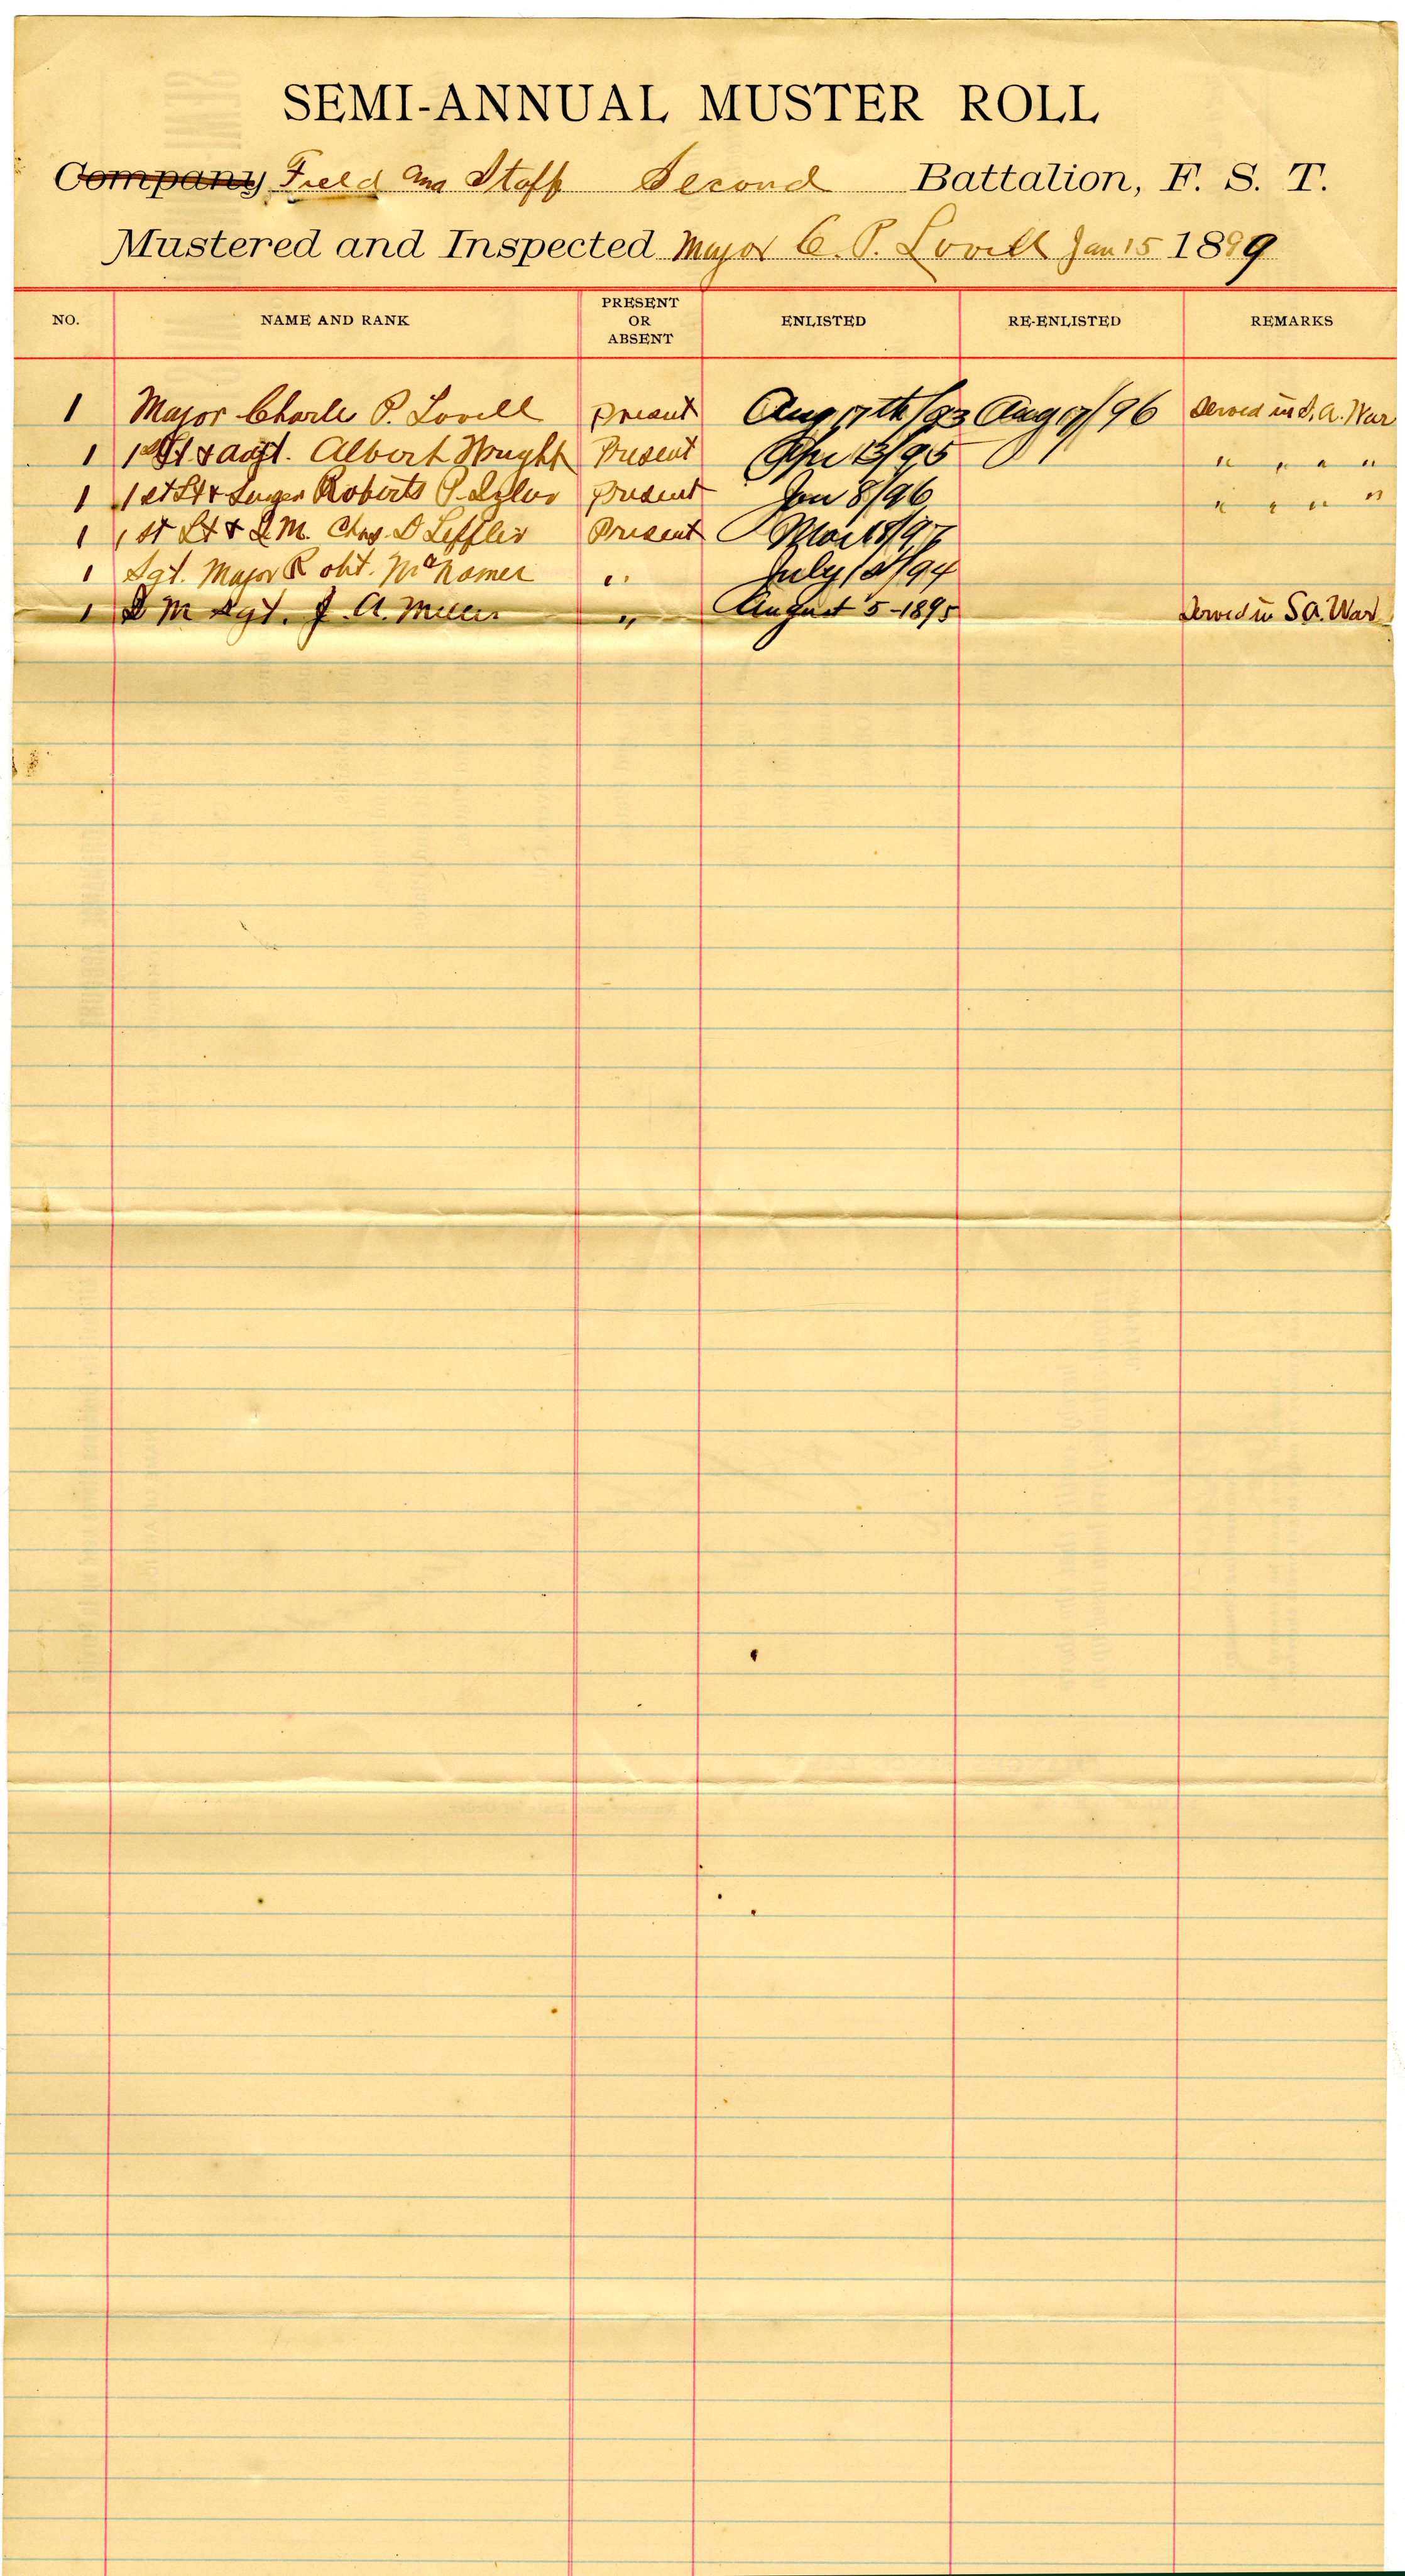 SEMI-ANNUAL MUSTER ROLL
Company Field and Staff Second Battalion, F. S. T.
Mustered and Inspected Major C. P. Lovell Jan 15 1899
NO. NAME AND RANK PRESENT OR ABSENT ENLISTED RE-ENLISTED REMARKS
1 Major Charles P. Lovell present Aug 17th/93 Aug 17/96 Served in S. A. War
1 1st Lt & Adjt. Albert Wright Present Apr 13/95 " " " "
1 1st Lt & Surgeon Roberts P. Izlar present Jan 8/96 " " " "
1 1st Lt & Q.M. Chas. D Leffler Present Mar 18/97
1 Sgt. Major Robt. McNamer " July 12/94
1 Q M Sgt. J. A. Miller " August 5-1895 Served in S A. War